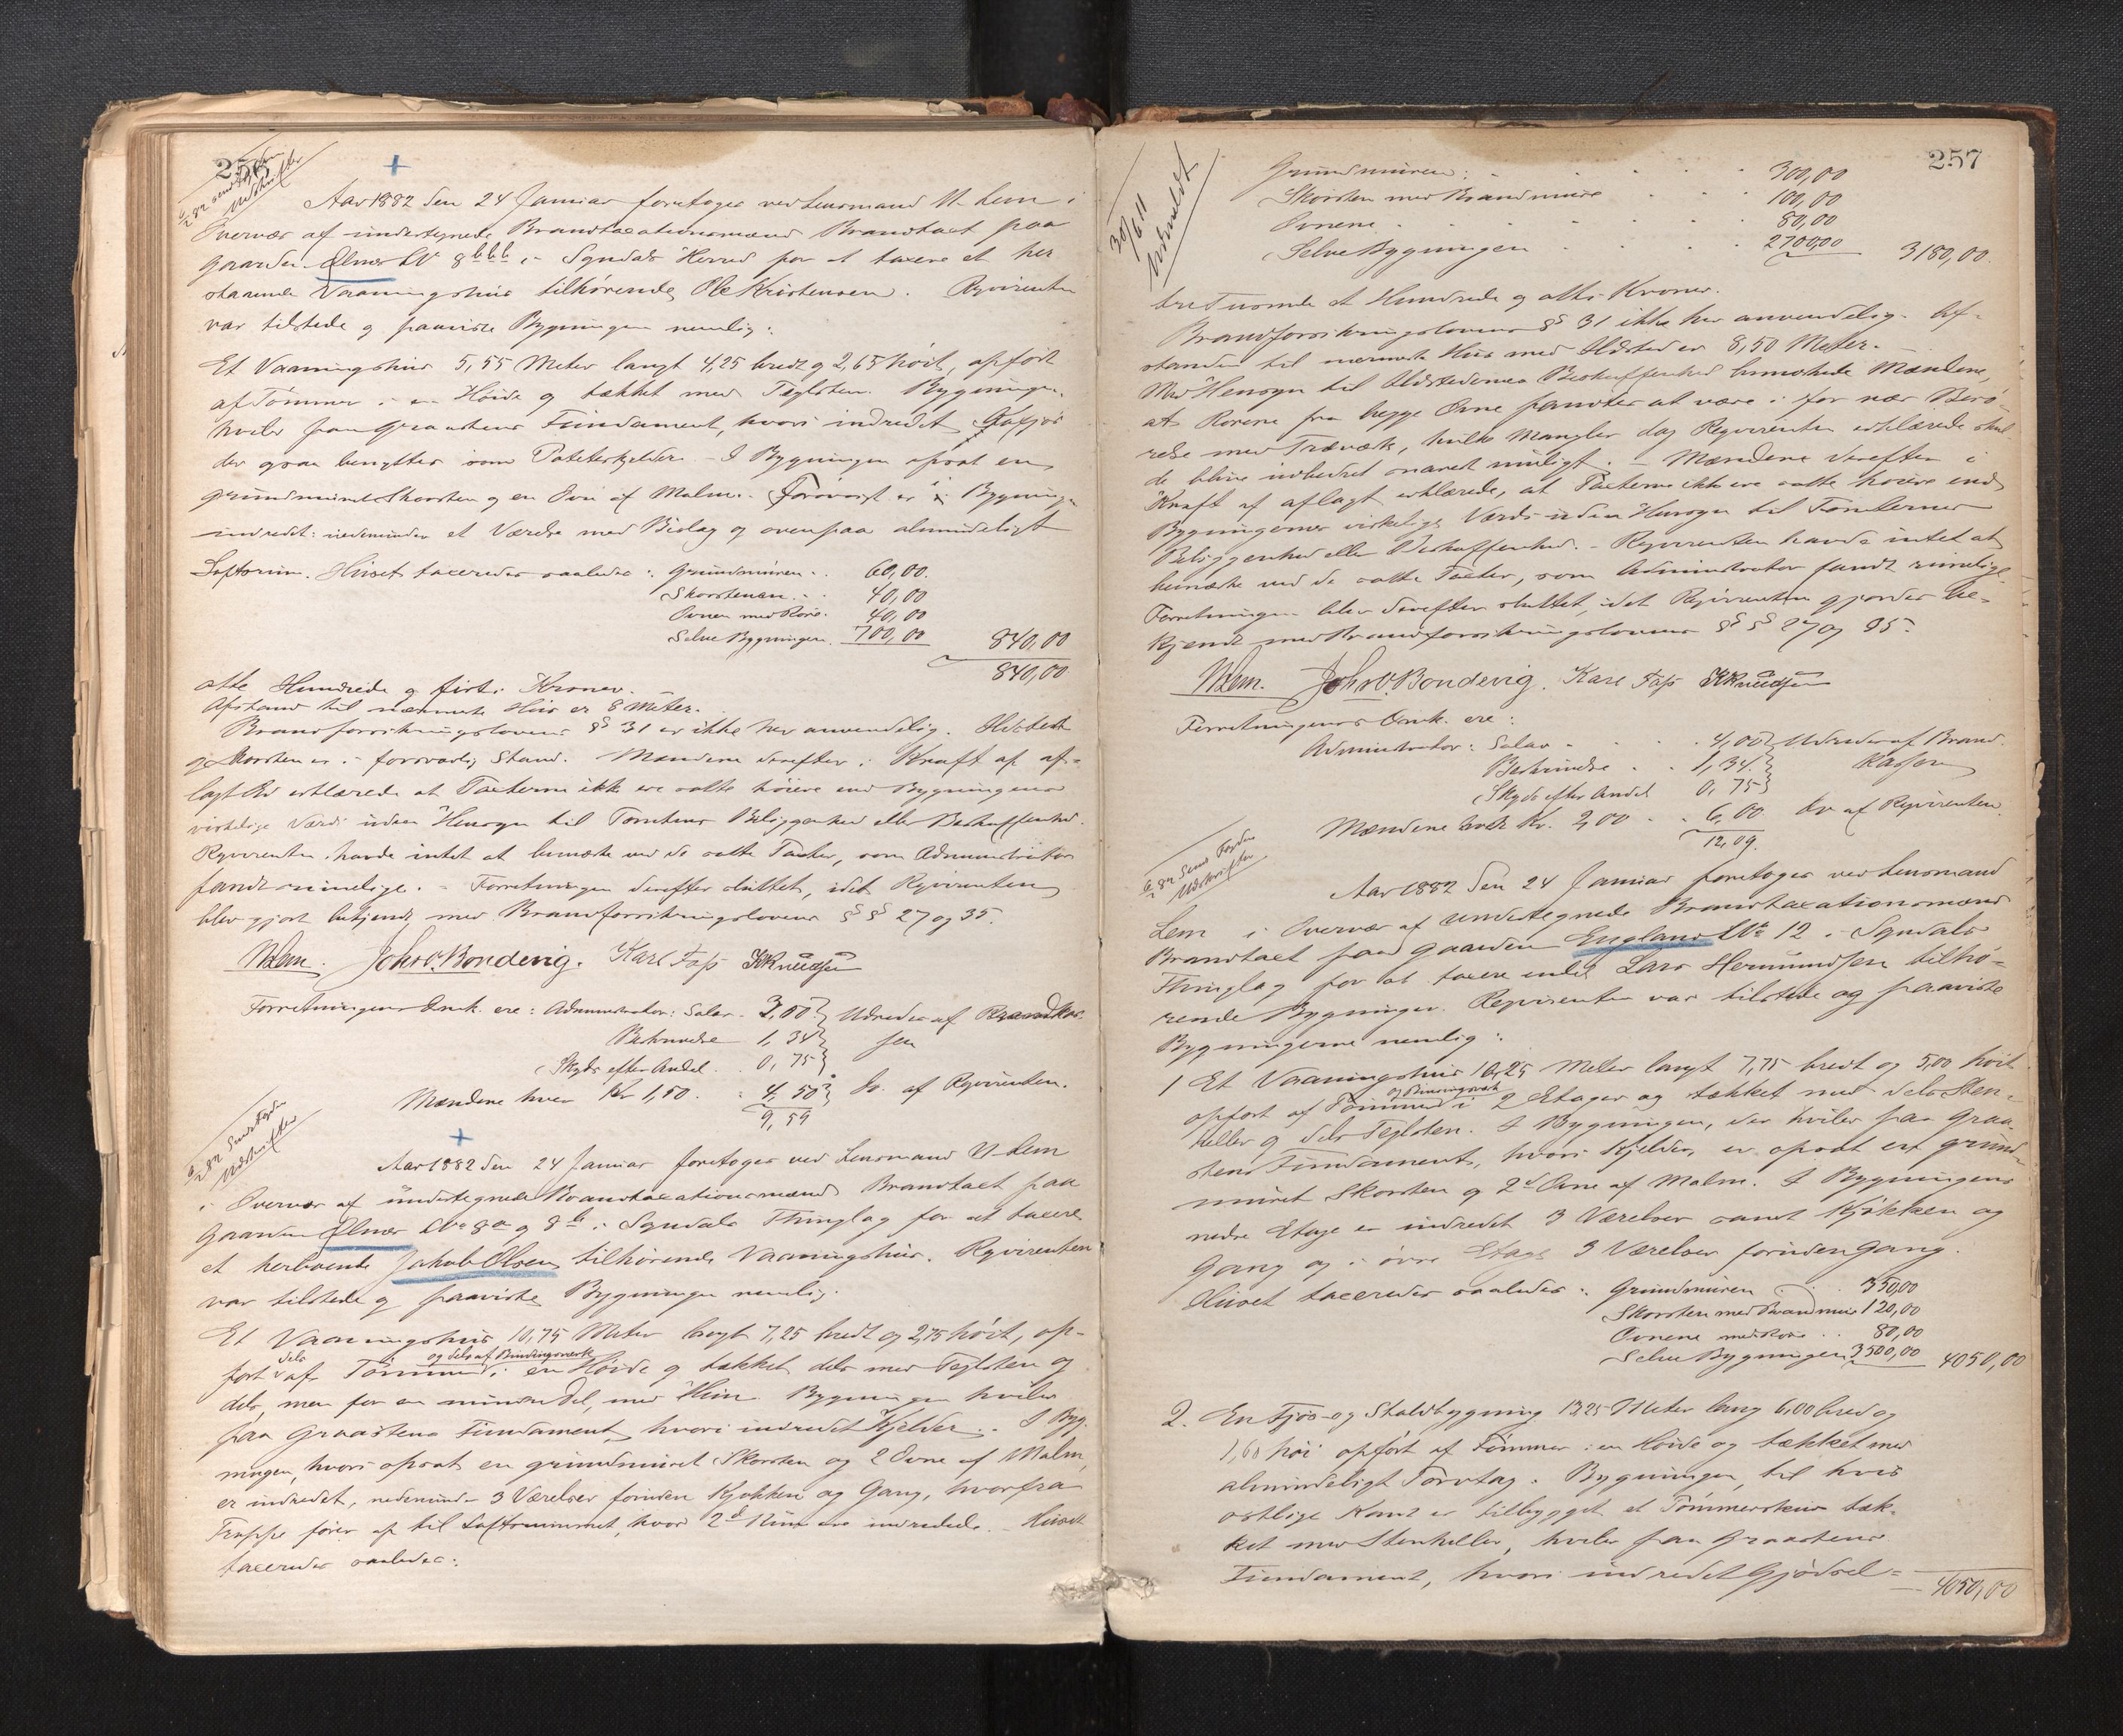 256
6/2 82 sendt Fogden
Udskrifter
Aar 1882 den 24 Januar foretoges ved Lensmand N. Lem i
Overvær af undertegnede Brandtaxationsmænd Brandtaxt paa
Gaarden Ølnes LN 8 bbb i Sogndals Herred for at taxere et her
staaende Vaaningshus tilhørende Ole Kristensen. Reqvirenten
var tilstede og paaviste Bygningen nemlig:
Et Vaaningshus 5,55 Meter langt 4,25 bredt og 2,65 høit, opført
af Tømmer i en Høide og tækket med Teglsten. Bygningen
hviler paa Graastens Fundament, hvori indredet
der ogsaa benyttes som Poteteskjelder. I Bygningen opsat en
grundmuret Skorsten og en Ovn af Malm. Forøvrigt er i Bygningen
indredet: nedenunder et Værelse med Bislag og ovenpaa almindeligt
Loftsrum. Huset taxeredes saaledes: Grundmuren 60,00.
Skorstenen 40,00
Ovnen med Rør 40,00
Selve Bygningen 700,00 840,00
840,00
otte Hundrede og firti Kroner.
Afstand til nærmeste Hus er 8 Meter.
Brandforsikringslovens § 31 er ikke her anvendelig. Ildsted
og Skorsten er i forsvarlig Stand. Mændene derefter i Kraft af af-
lagt Ed erklærede at Taxterne ikke ere satte høiere end Bygningens
virkelige Værdi uden Hensyn til Tomtens Beliggenhed eller Beskaffenhed.
Reqvirenten havde intet at bemærke ved de satte Taxter, som Administrator
fandt rimelige. - Forretningen derefter sluttet, idet Reqvirenten
blev gjort bekjendt med Brandforsikringslovens §§ 27 og 35.
NLem. Johs O. Bondevig. Karl Fosß KKnudsen
Forretningens Omk. ere: Administrator: Salær 3,00 Udredes af Brandkas-
Beskrivelse 1,34 sen
Skyds efter Andel 0,75
Mændene hver Kr 1,50 4,50 do. af Reqvirenten.
9,59
6/2 82 Sendt Fogden
Udskrifter
Aar 1882 den 24 Januar foretoges ved Lensmand N. Lem
i Overvær af undertegnede Brandtaxationsmænd Brandtaxt paa
Gaarden Ølnes LNo 8a og 8b i Sogndals Thinglag for at taxere
et herboende Jakob Olsen tilhørende Vaaningshus. Reqvirenten
var tilstede og paaviste Bygningen nemlig:
Et Vaaningshus 10,75 Meter langt 7,25 bredt og 2,75 høit, op-
dels og dels af Bindingsverk
ført af Tømmer i en Høide og tækket dels med Teglsten og
dels, men for en mindre Del, med Helle. Bygningen hviler
paa Graastens Fundament, hvori indredet Kjelder. I Byg-
ningen, hvori opsat en grundmuret Skorsten og 2 Ovne af Malm,
er indredet, nedenunder 3 Værelser foruden Kjøkken og Gang, hvorfra
Trappe fører op til Loftsrummet, hvor 2de Rum ere indredede. - Huset
taxeredes saaledes:
257
30/6 11
Udmeldt
Grundmuren: 300,00
Skorsten med Brandmure 100,00
Ovnene 80,00
Selve Bygningen 2700,00 3180,00.
tre Tusinde et Hundrede og otti Kroner.
Brandforsikringslovens § 31 ikke her anvendelig. Af-
standen til nærmeste Hus med Ildsted er 8,50 Meter.
Med Hensyn til Ildstedernes Beskaffenhed bemærkede Mændene,
at Rørene fra begge Ovne fandtes at være i for nær Berø-
relse med Træværk, hvilke Mangler dog Reqvirenten erklærede skul-
de blive udbedret snarest muligt. - Mændene derefter i
Kraft af aflagt erklærede, at Taxterne ikke ere satte høiere end
Bygningernes virkelige Værdi uden Hensyn til Tomternes
Beliggenhed eller Beskaffenhed. - Reqvirenten havde intet at
bemærke ved de satte Taxter, som Administrator fandt rimelige.
Forretningen blev derefter sluttet, idet Reqvirenten gjordes be-
kjendt med Brandforsikringslovens §§ 27 og 35.
NLem. Johs O Bondevig. Karl Fosß KKnudsen
Forretningens Omk. ere:
Administrator: Salær 4,00 Udredes af Brand-
Beskrivelse 1,34 kassen
Skyds efter Andel 0,75
Mændene hver Kr. 2,00 6,00 do af Reqvirenten.
12,09.
6/2 82 Sendt Fogden
Udskrifter
Aar 1882 den 24 Januar foretoges ved Lensmand
Lem i Overvær af undertegnede Brandtaxationsmænd
Brandtaxt paa Gaarden England LNo 12 i Sogndals
Thinglag for at taxere endel Lars Hermundsen tilhø-
rende Bygninger. Reqvirenten var tilstede og paaviste
Bygningerne nemlig:
1 Et Vaaningshus 10,25 Meter langt 7,75 bredt og 5,00 høit
og Bindingsverk
opført af Tømmer i 2 Etager og tækket med dels Sten-
heller og dels Teglsten. I Bygningen, der hviler paa Graa-
stens Fundament, hvori Kjelder, er opsat en grund-
muret Skorsten og 2de Ovne af Malm. I Bygningens
nedre Etage er indredet 3 Værelser samt Kjøkken og
Gang og i øvre Etage 3 Værelser foruden Gang.
Huset taxeredes saaledes: Grundmuren 350,00
Skorsten med Brandmur 120,00
Ovnene med Rør 80,00
Selve Bygningen 3500,00 4050,00
2. En Fjøs- og Staldbygning 13,25 Meter lang 6,00 bred og
1,60 høi opført af Tømmer i en Høide og tækket med
almindeligt Torvtag. Bygningen, til hvis
østlige Kant er tilbygget et Tømmerskur tæk-
ket med Stenheller, hviler paa Graastens
Fundament, hvori indredet Gjødsel-
4050,00